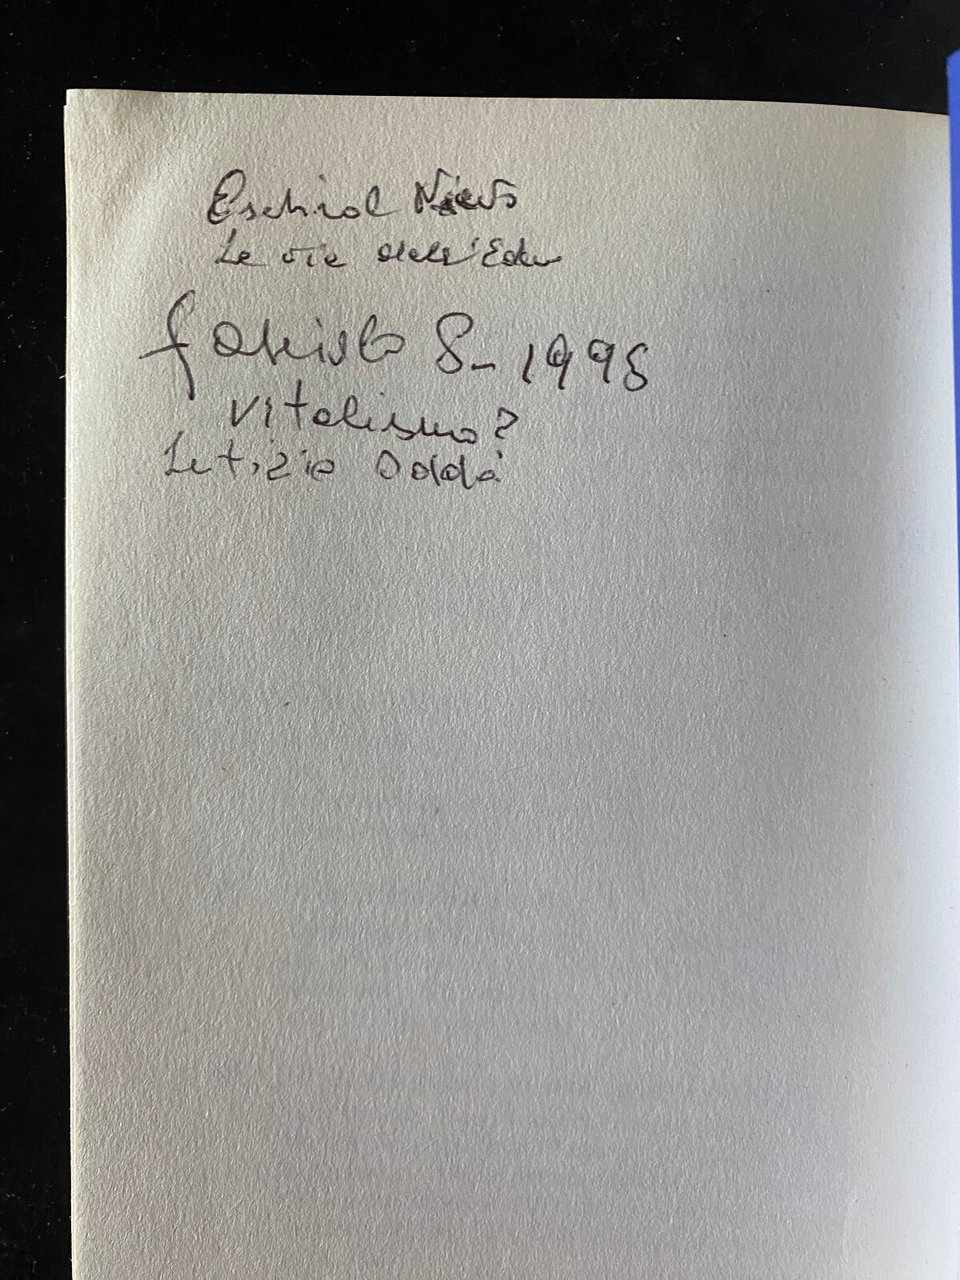 Eschirol Nievo
Le vie dell'Eden
8-1998
vitalismo?
Letizia Oddo